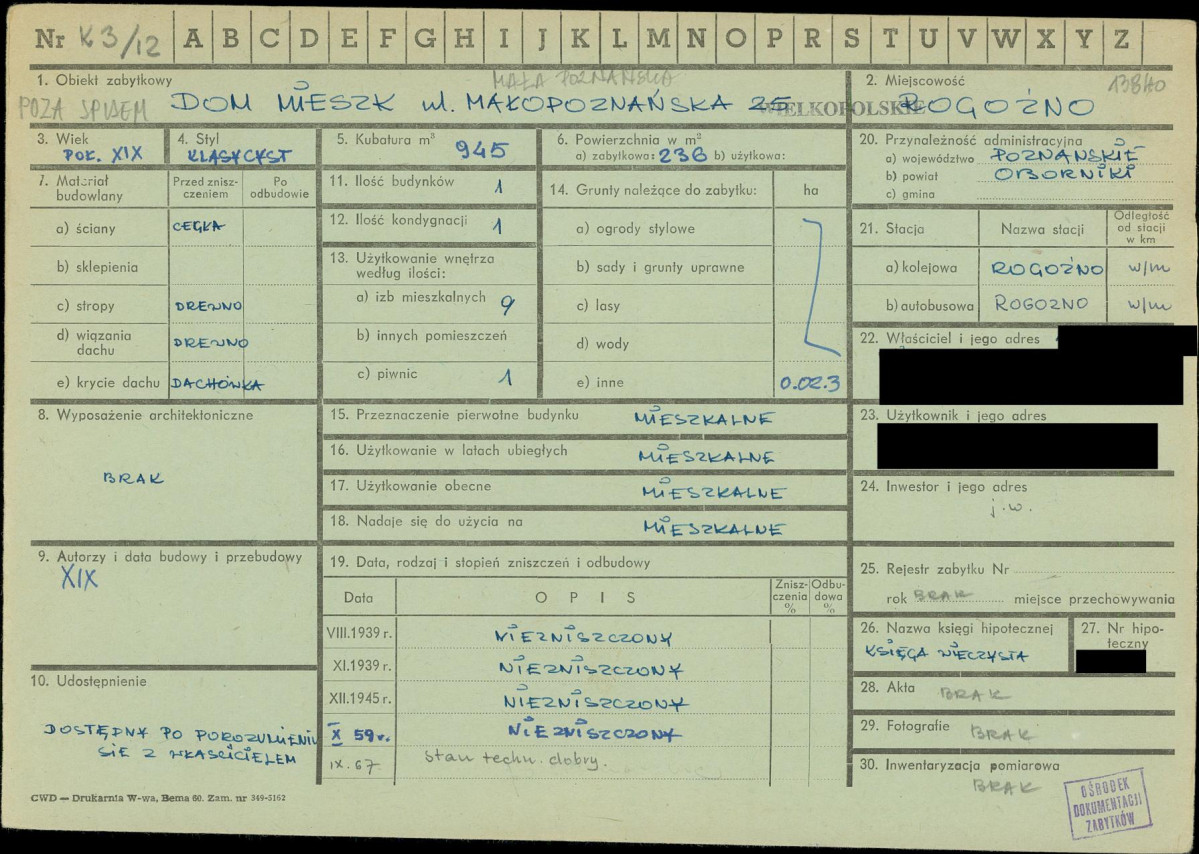 Nr K3/12 A B C D E F G H I J K L M N O P R S T U V W X Y Z
1. Obiekt zabytkowy
MAŁA POZNAŃSKA
POZA SPISEM
DOM MIESZK ul. MAŁOPOZNAŃSKA 25
WIELKOPOLSKIE
2. Miejscowość
ROGOŹNO
3. Wiek
POŁ. XIX
4. Styl
KLASYCYST
5. Kubatura m³
945
6. Powierzchnia w m²
a) zabytkowa: 236 b) użytkowa:
20. Przynależność administracyjna
a) województwo POZNAŃSKIE
b) powiat OBORNIKI
c) gmina
7. Materiał budowlany
Przed zniszczeniem
Po odbudowie
a) ściany CEGŁA
b) sklepienia
c) stropy DREWNO
d) wiązania dachu DREWNO
e) krycie dachu DACHÓWKA
11. Ilość budynków 1
12. Ilość kondygnacji 1
13. Użytkowanie wnętrza według ilości:
a) izb mieszkalnych 9
b) innych pomieszczeń
c) piwnic 1
14. Grunty należące do zabytku: ha
a) ogrody stylowe
b) sady i grunty uprawne
c) lasy
d) wody
e) inne 0.02.3
21. Stacja
Nazwa stacji
Odległość od stacji w km
a) kolejowa ROGOŹNO w/m
b) autobusowa ROGOZNO w/m
22. Właściciel i jego adres
8. Wyposażenie architektoniczne
BRAK
15. Przeznaczenie pierwotne budynku MIESZKALNE
16. Użytkowanie w latach ubiegłych MIESZKALNE
17. Użytkowanie obecne MIESZKALNE
18. Nadaje się do użycia na MIESZKALNE
23. Użytkownik i jego adres
24. Inwestor i jego adres
j.w.
9. Autorzy i data budowy i przebudowy
XIX
19. Data, rodzaj i stopień zniszczeń i odbudowy
Data
OPIS
Zniszczenia %
Odbudowa %
VIII.1939 r. NIEZNISZCZONY
XI.1939 r. NIEZNISZCZONY
XII.1945 r. NIEZNISZCZONY
X 59 r. NIEZNISZCZONY
IX. 67 stan techn. dobry.
25. Rejestr zabytku Nr
rok BRAK miejsce przechowywania
26. Nazwa księgi hipotecznej
KSIĘGA WIECZYSTA
27. Nr hipoteczny
10. Udostępnienie
DOSTĘPNY PO POROZUMIENIU
SIE Z WŁAŚCICIELEM
28. Akta BRAK
29. Fotografie BRAK
30. Inwentaryzacja pomiarowa
BRAK
OŚRODEK
DOKUMENTACJI
ZABYTKÓW
CWD — Drukarnia W-wa, Bema 60. Zam. nr 349-5162